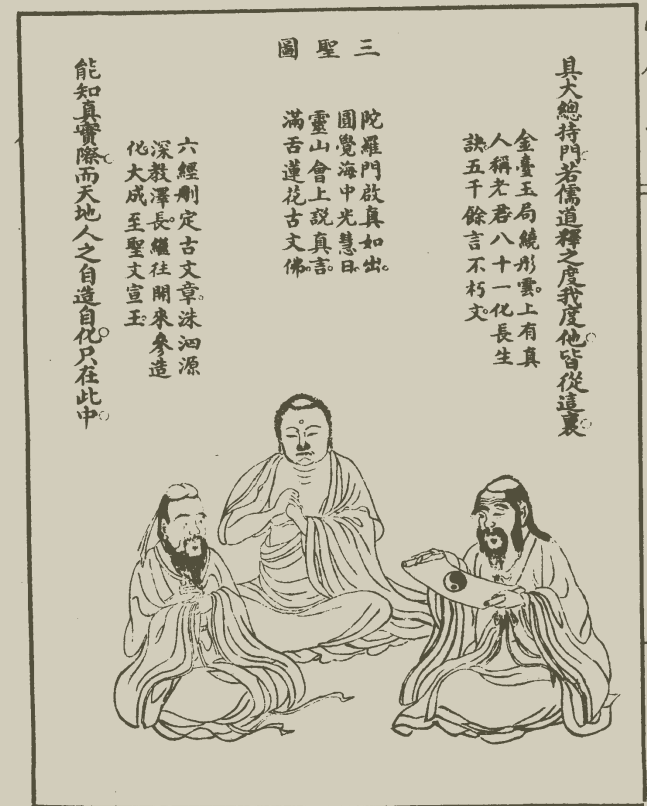 三聖圖
具大總持門若儒道釋之度我度他皆從這裏
金臺玉局繞彤雲上有真
人稱老君八十一化長生
訣五千餘言不朽文
陀羅門啟真如出
圓覺海中光慧日
靈山會上説真言
滿舌蓮花古文佛
六經刪定古文章洙泗源
深教澤長繼往開來參造
化大成至聖文宣王
能知真實際而天地人之自造自化只在此中